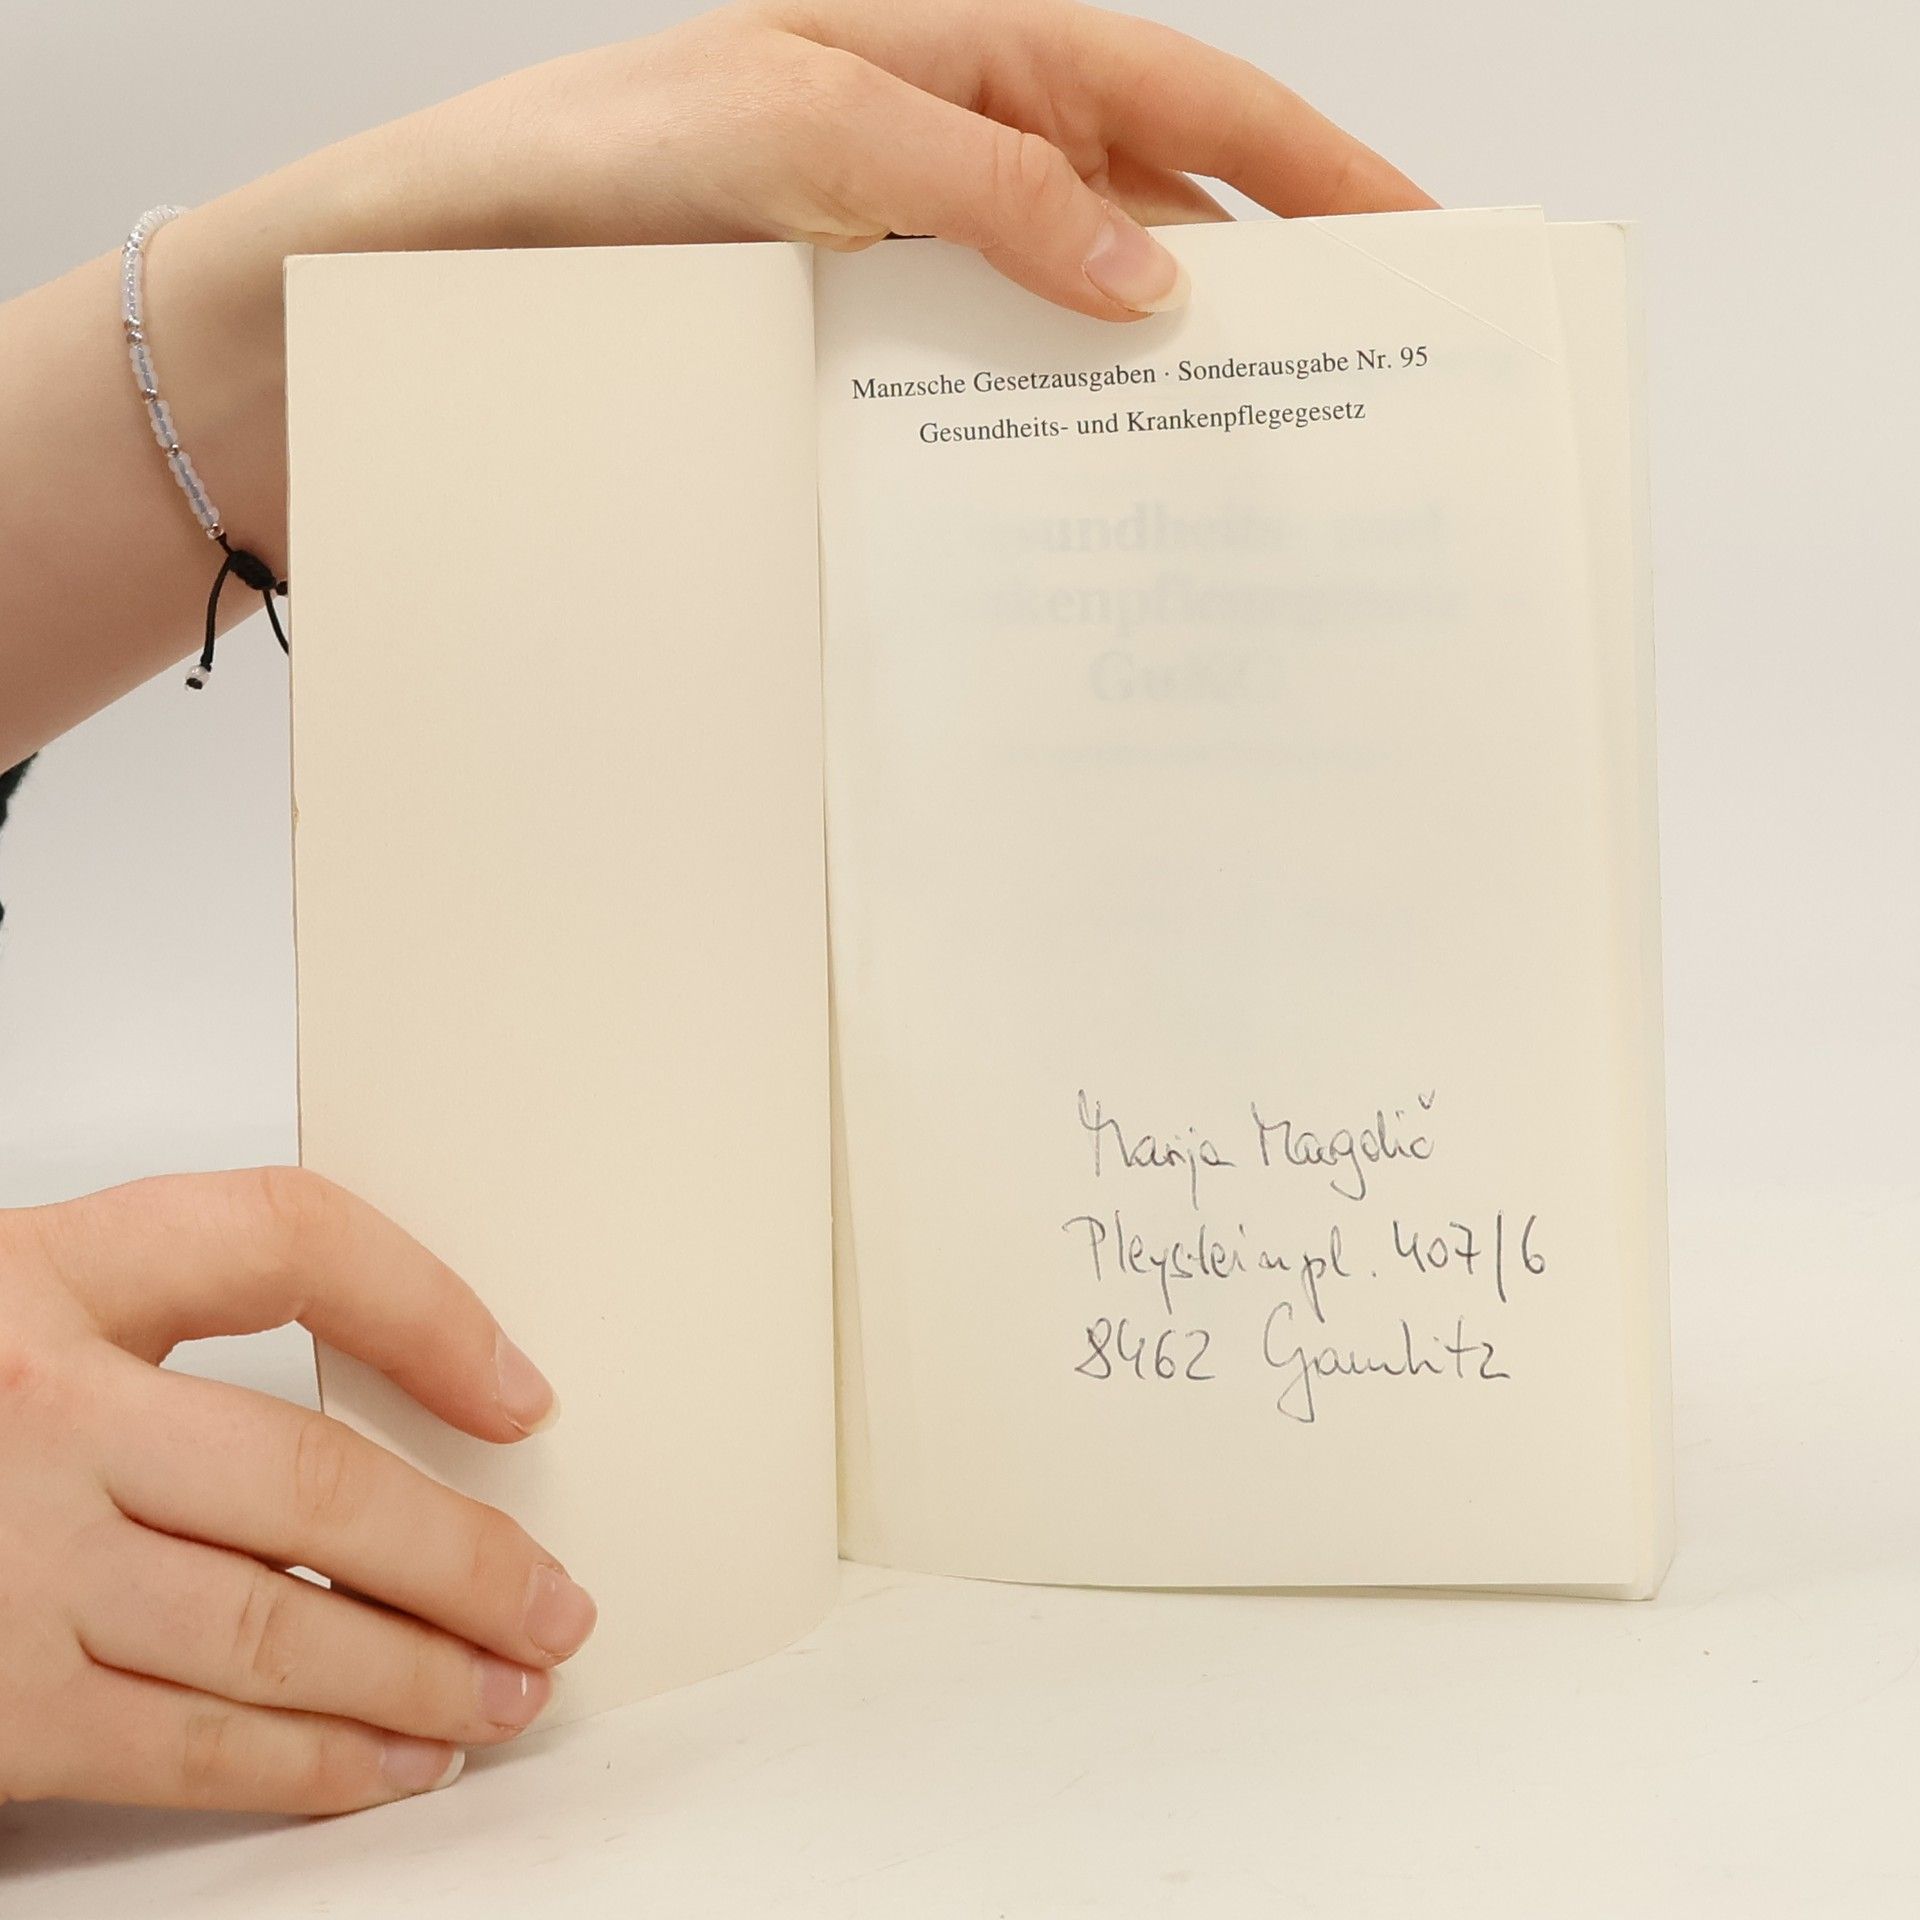 Manzsche Gesetzausgaben · Sonderausgabe Nr. 95
Gesundheits- und Krankenpflegegesetz
Marija
Pleysteinpl. 407/6
8462 Gamlitz